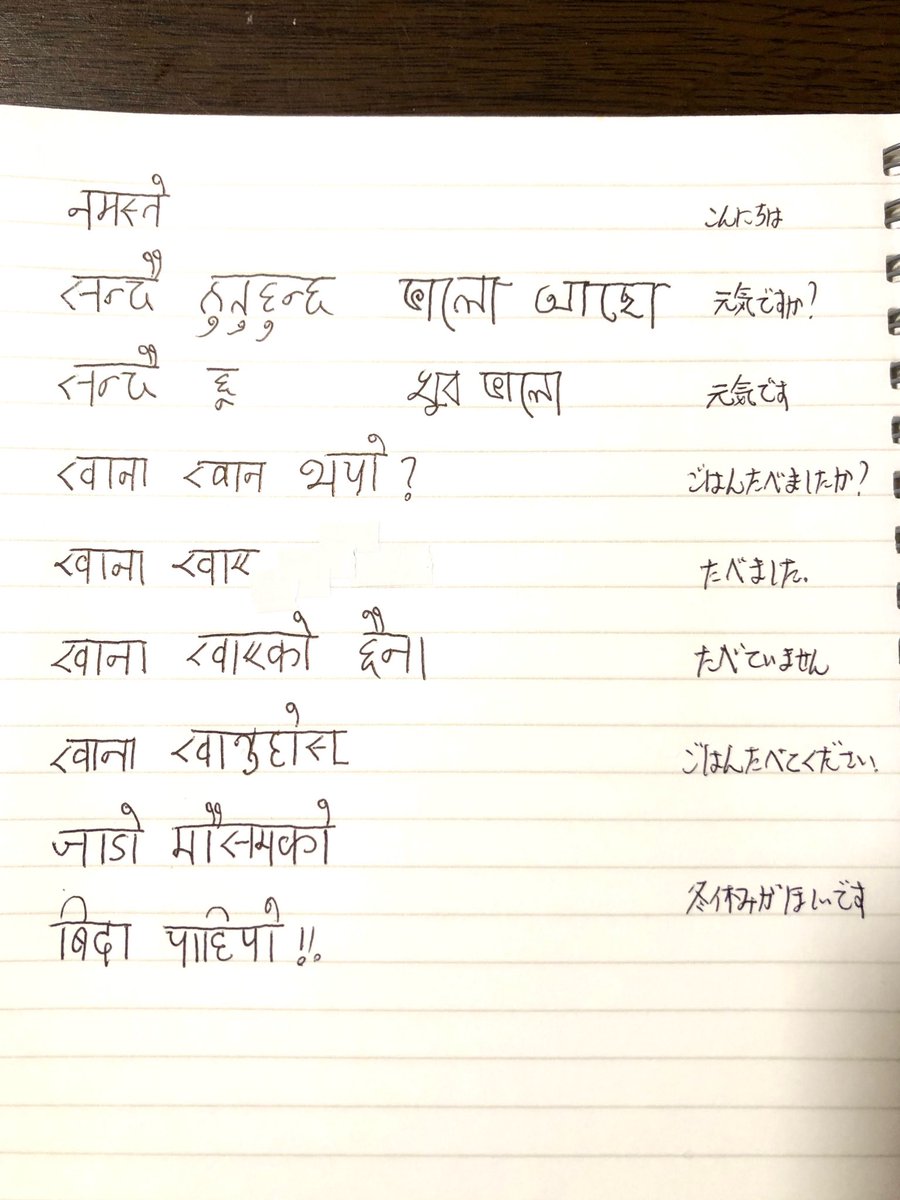 नमस्ते こんにちは
सन्चै हुनुहुन्छ ভালো আছো 元気ですか?
सन्चै छु খুব ভালো 元気です
खाना खान भयो ? ごはんたべましたか?
खाना खाए たべました.
खाना खाएको छैन। たべていません
खाना खानुहोस् ごはんたべてください.
जाडो मौसमको
बिदा चाहियो !! 冬休みがほしいです